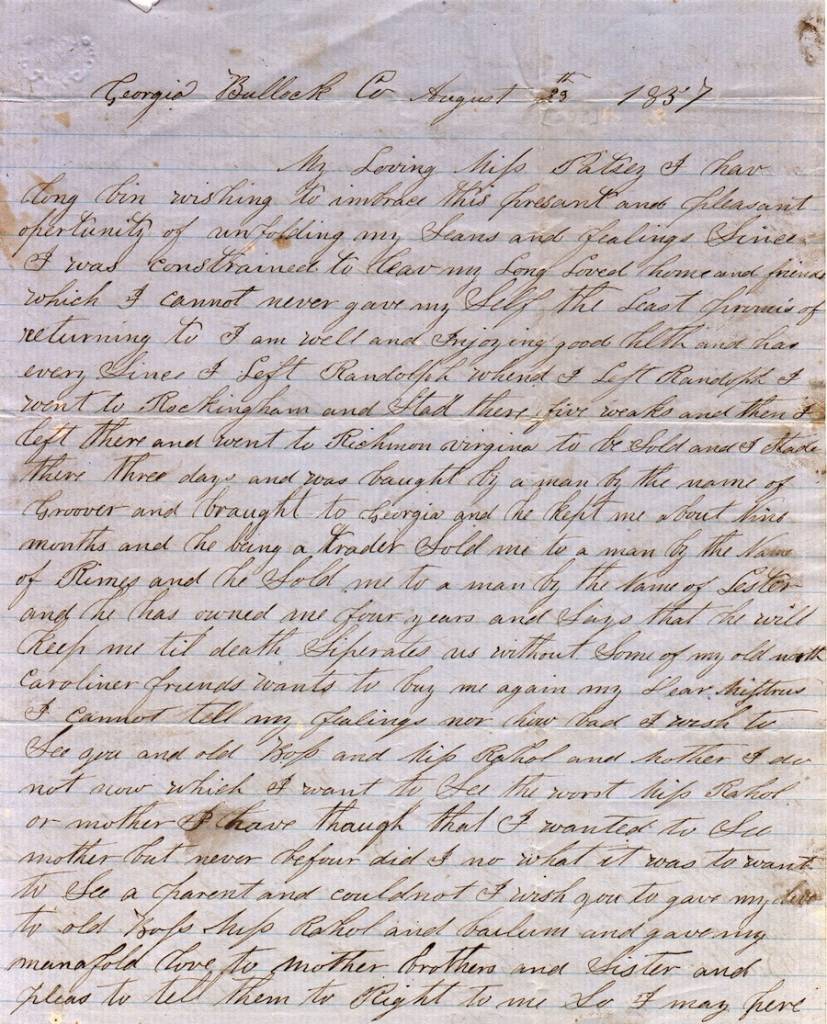 Georgia Bullock Co August 29th 1857
My Loving Miss Patsey I hav
long bin wishing to imbrace this presant and pleasant
opertunity of unfolding my Seans and fealings Since
I was constrained to leav my Long Loved home and friends
which I cannot never gave my Self the Least promis of
returning to I am well and Injoying good hlth and has
every Since I Left Randolph whend I Left Randolph I
went to Rockingham and Stad there five weaks and then I
left there and went to Richmon virgina to be Sold and I Stade
there three days and was baught by a man by the name of
Groover and braught to Georgia and he kept me about Nine
months and he being a trader Sold me to a man by the Name
of Rimes and he Sold me to a man by the Name of Lester
and he has owned me four years and Says that he will
keep me til death Siperates us without Some of my old north
caroliner friends wants to buy me again my Dear Mistress
I cannot tell my fealings nor how bad I wish to
See you and old Boss and Miss Rahol and Mother I do
not now which I want to See the worst Miss Rahol
or mother I have though that I wanted to See
mother but never befour did I no what it was to want
to See a parent and could not I wish you to gave my love
to old Boss Miss Rahol and bailum and gave my
manafold love to mother brothers and Sister and
pleas to tell them to Right to me So I may here